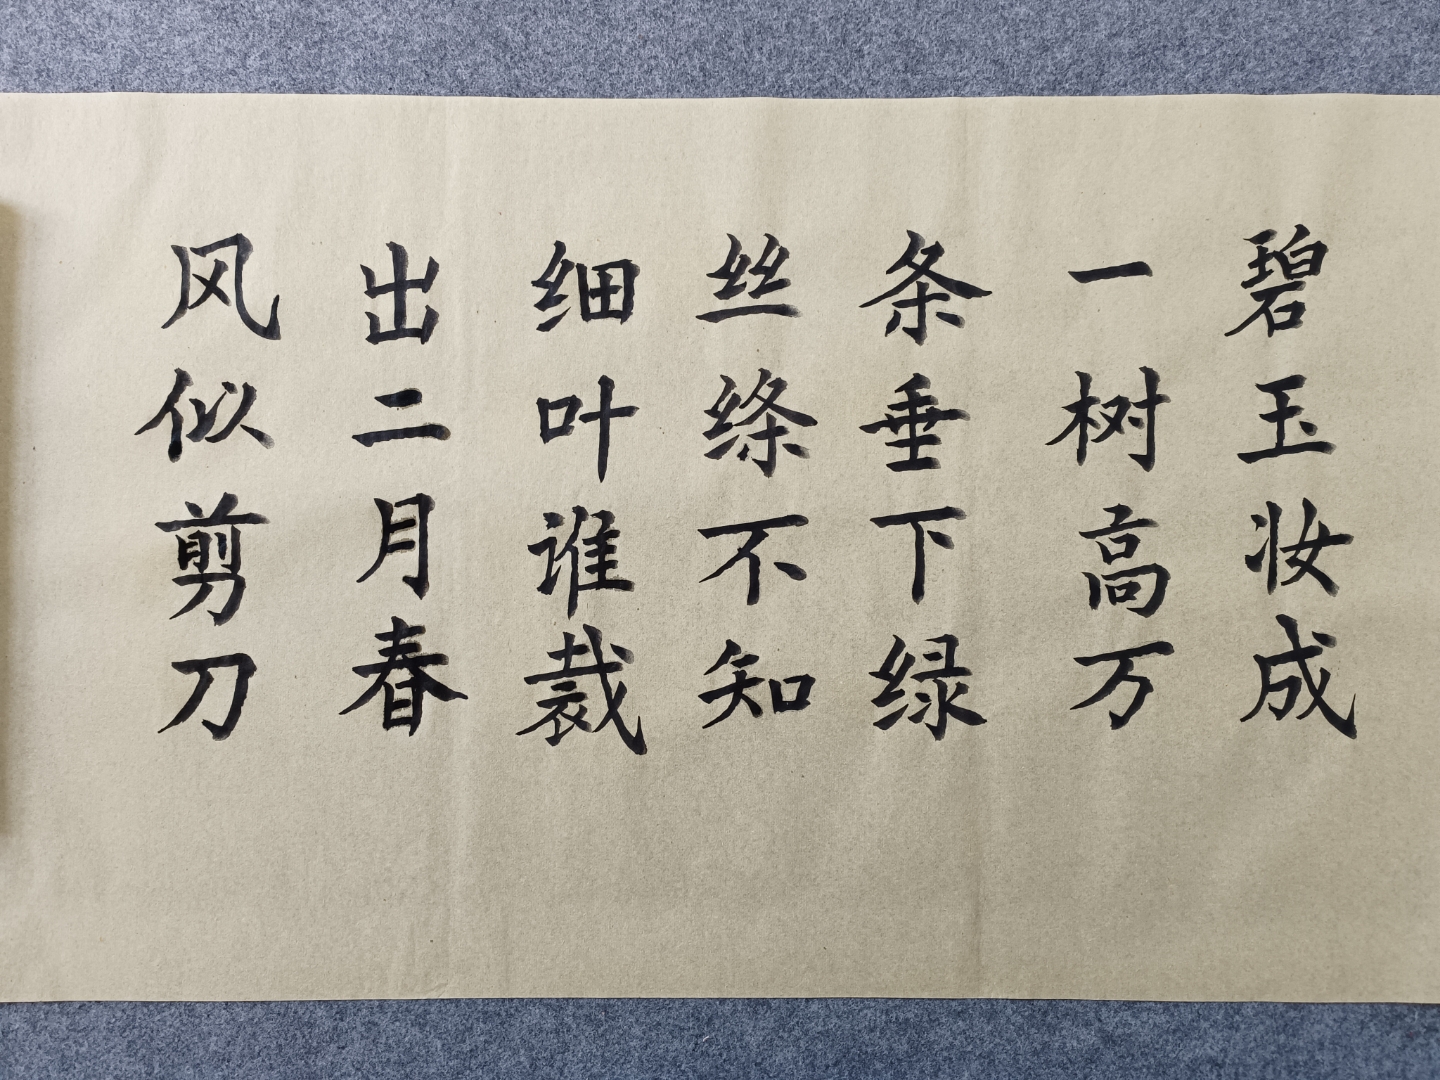 碧玉妆成
一树高万
条垂下绿
丝绦不知
细叶谁裁
出二月春
风似剪刀